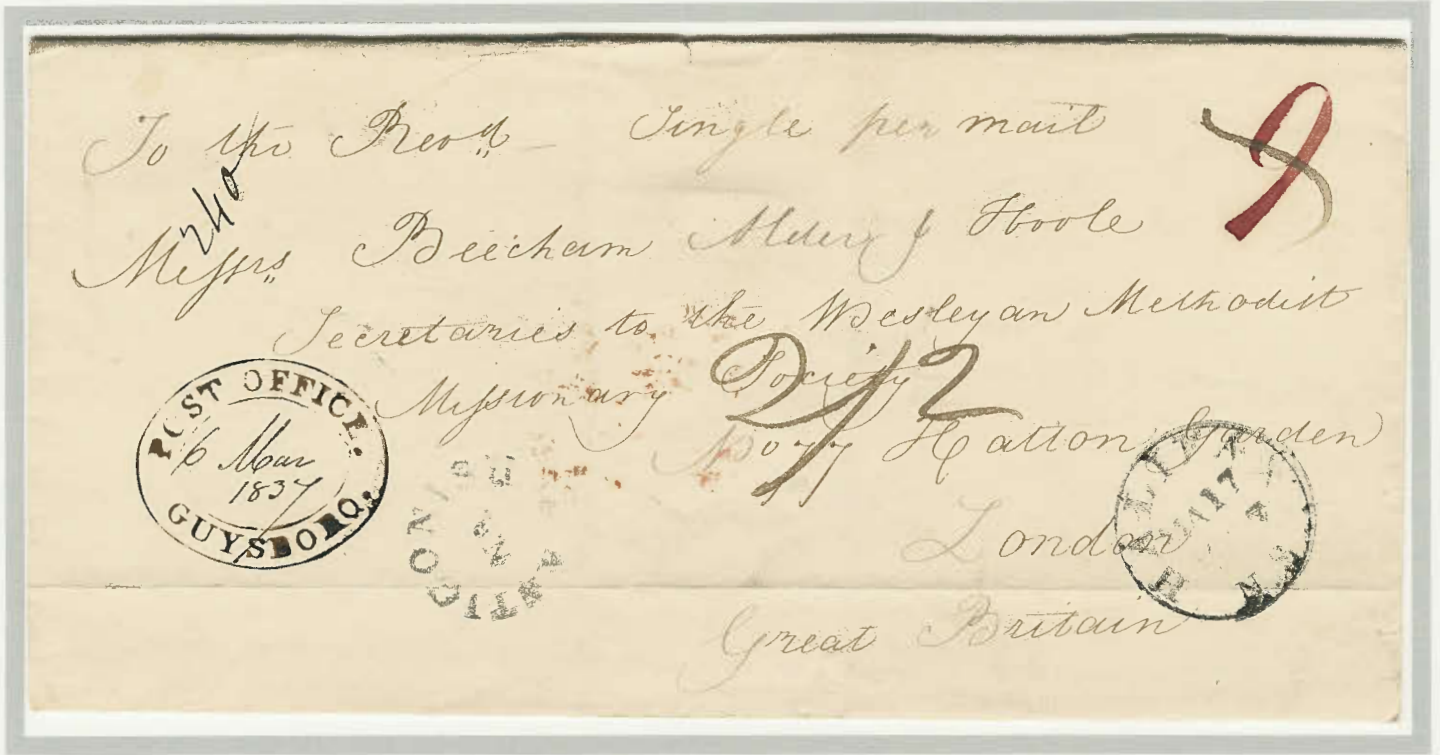 To the Revd. Single per mail
9
240
Messrs. Beecham Alder & Hoole
Secretaries to the Wesleyan Methodist
Missionary Society
2/2
No 77 Hatton Garden
London
Great Britain
POST OFFICE.
6 Mar
1837
GUYSBORO.
HALIFAX
N.S